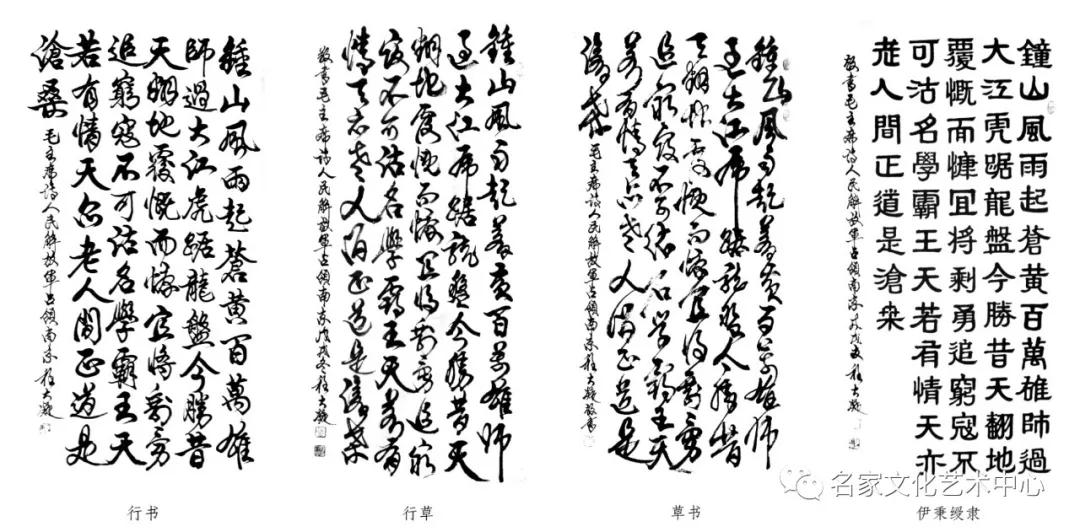 鍾山風雨起蒼黃百萬雄
師過大江虎踞龍盤今勝昔
天翻地覆慨而慷宜將剩勇
追窮寇不可沽名學霸王天
若有情天亦老人間正道是
滄桑
毛主席詩人民解放軍占領南京
行书
鍾山風雨起蒼黃百萬雄師
過大江虎踞龍盤今勝昔天
翻地覆慨而慷宜將剩勇追窮
寇不可沽名學霸王天若有
情天亦老人間正道是滄桑
敬書毛主席詩人民解放軍占領南京戊戌冬
行草
鍾山風雨起蒼黃百萬雄師
過大江虎踞龍盤今勝昔
天翻地覆慨而慷宜將剩勇
追窮寇不可沽名學霸王天
若有情天亦老人間正道是
滄桑
毛主席詩人民解放軍占領南京
草书
鐘山風雨起蒼黃百萬雄師過
大江虎踞龍盤今勝昔天翻地
覆慨而慷宜将剩勇追窮寇不
可沽名學霸王天若有情天亦
老人間正道是滄桒
敬書毛主席詩人民解放軍占領南京
伊秉绶隶
名家文化艺术中心